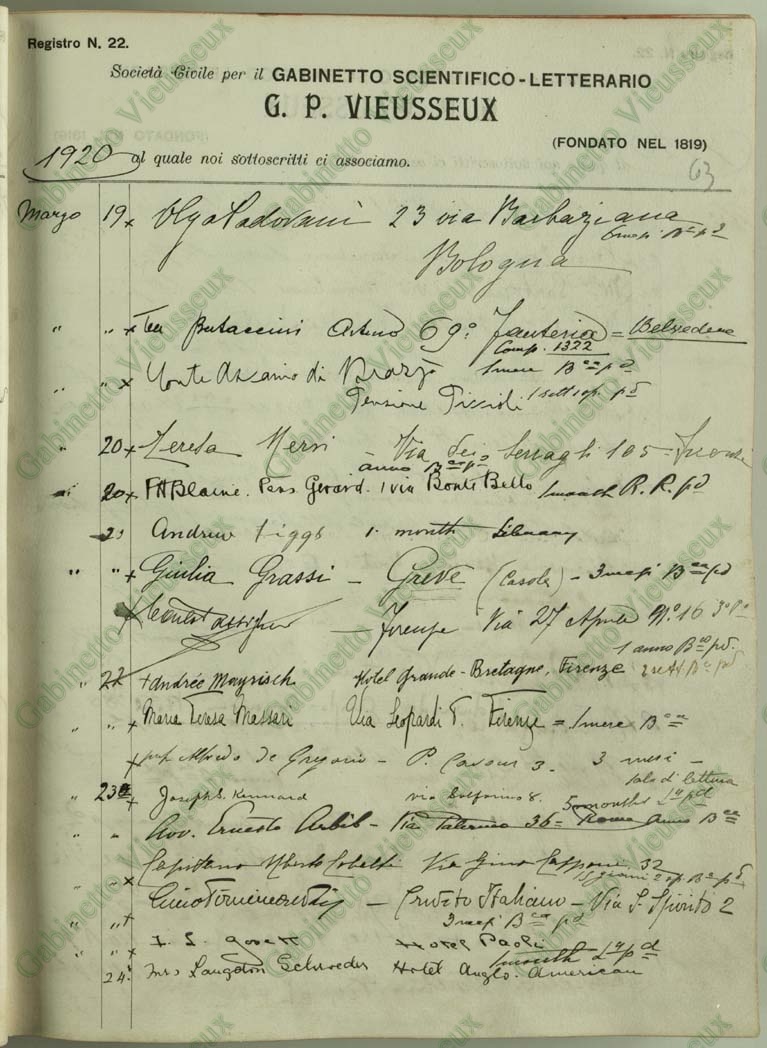 Registro N. 22.
Società Civile per il GABINETTO SCIENTIFICO-LETTERARIO
G. P. VIEUSSEUX
(FONDATO NEL 1819)
1920 al quale noi sottoscritti ci associamo.
63
Marzo 19 x Olga Padovani 23 via Barbaziana
6 mesi Bca pd
Bologna
" " x Ten Arturo 69° Fanteria = Belvedere
Comp. 1322
" " x Conte Ascanio di Brazzà 1 mese Bca pd
Pensione Piccioli 1 sett. op. pd
" 20 x Teresa Via dei Serragli 105 = Firenze
anno Bca pd
" 20 x FH Blaine. Pens Gerard. 1 via Bonte Bello 1 month R. R. pd
21 Andrew Figgs 1 month Library
" " x Giulia Grassi - Greve (Casole) - 3 mesi Bca pd
x — Firenze Via 27 Aprile No. 16 3° Po
1 anno Bca pd.
" 22 x Andrée Mayrisch Hotel Grande-Bretagne, Firenze 2 sett Bca pd
" " x Maria Teresa Massari Via Leopardi 7. Firenze = 1 mese Bca
x prof Alfredo de Gregorio - P. Cavour 3. 3 mesi -
sala di lettura
" 23 x Joseph S. Kennard via Solferino 8. 5 months pd
" " Avv. Ernesto Arbib - Via Palermo 36 = Roma anno Bca
" x Capitano Umberto Via Gino Capponi 32
15 giorni 2 op. Bca pd
" " x - Credito Italiano - Via S. Spirito 2
3 mesi Bca pd
" " x Hotel Paoli
1 month pd
24. Mrs Langdon Schroeder Hotel Anglo-American
Gabinetto Vieusseux